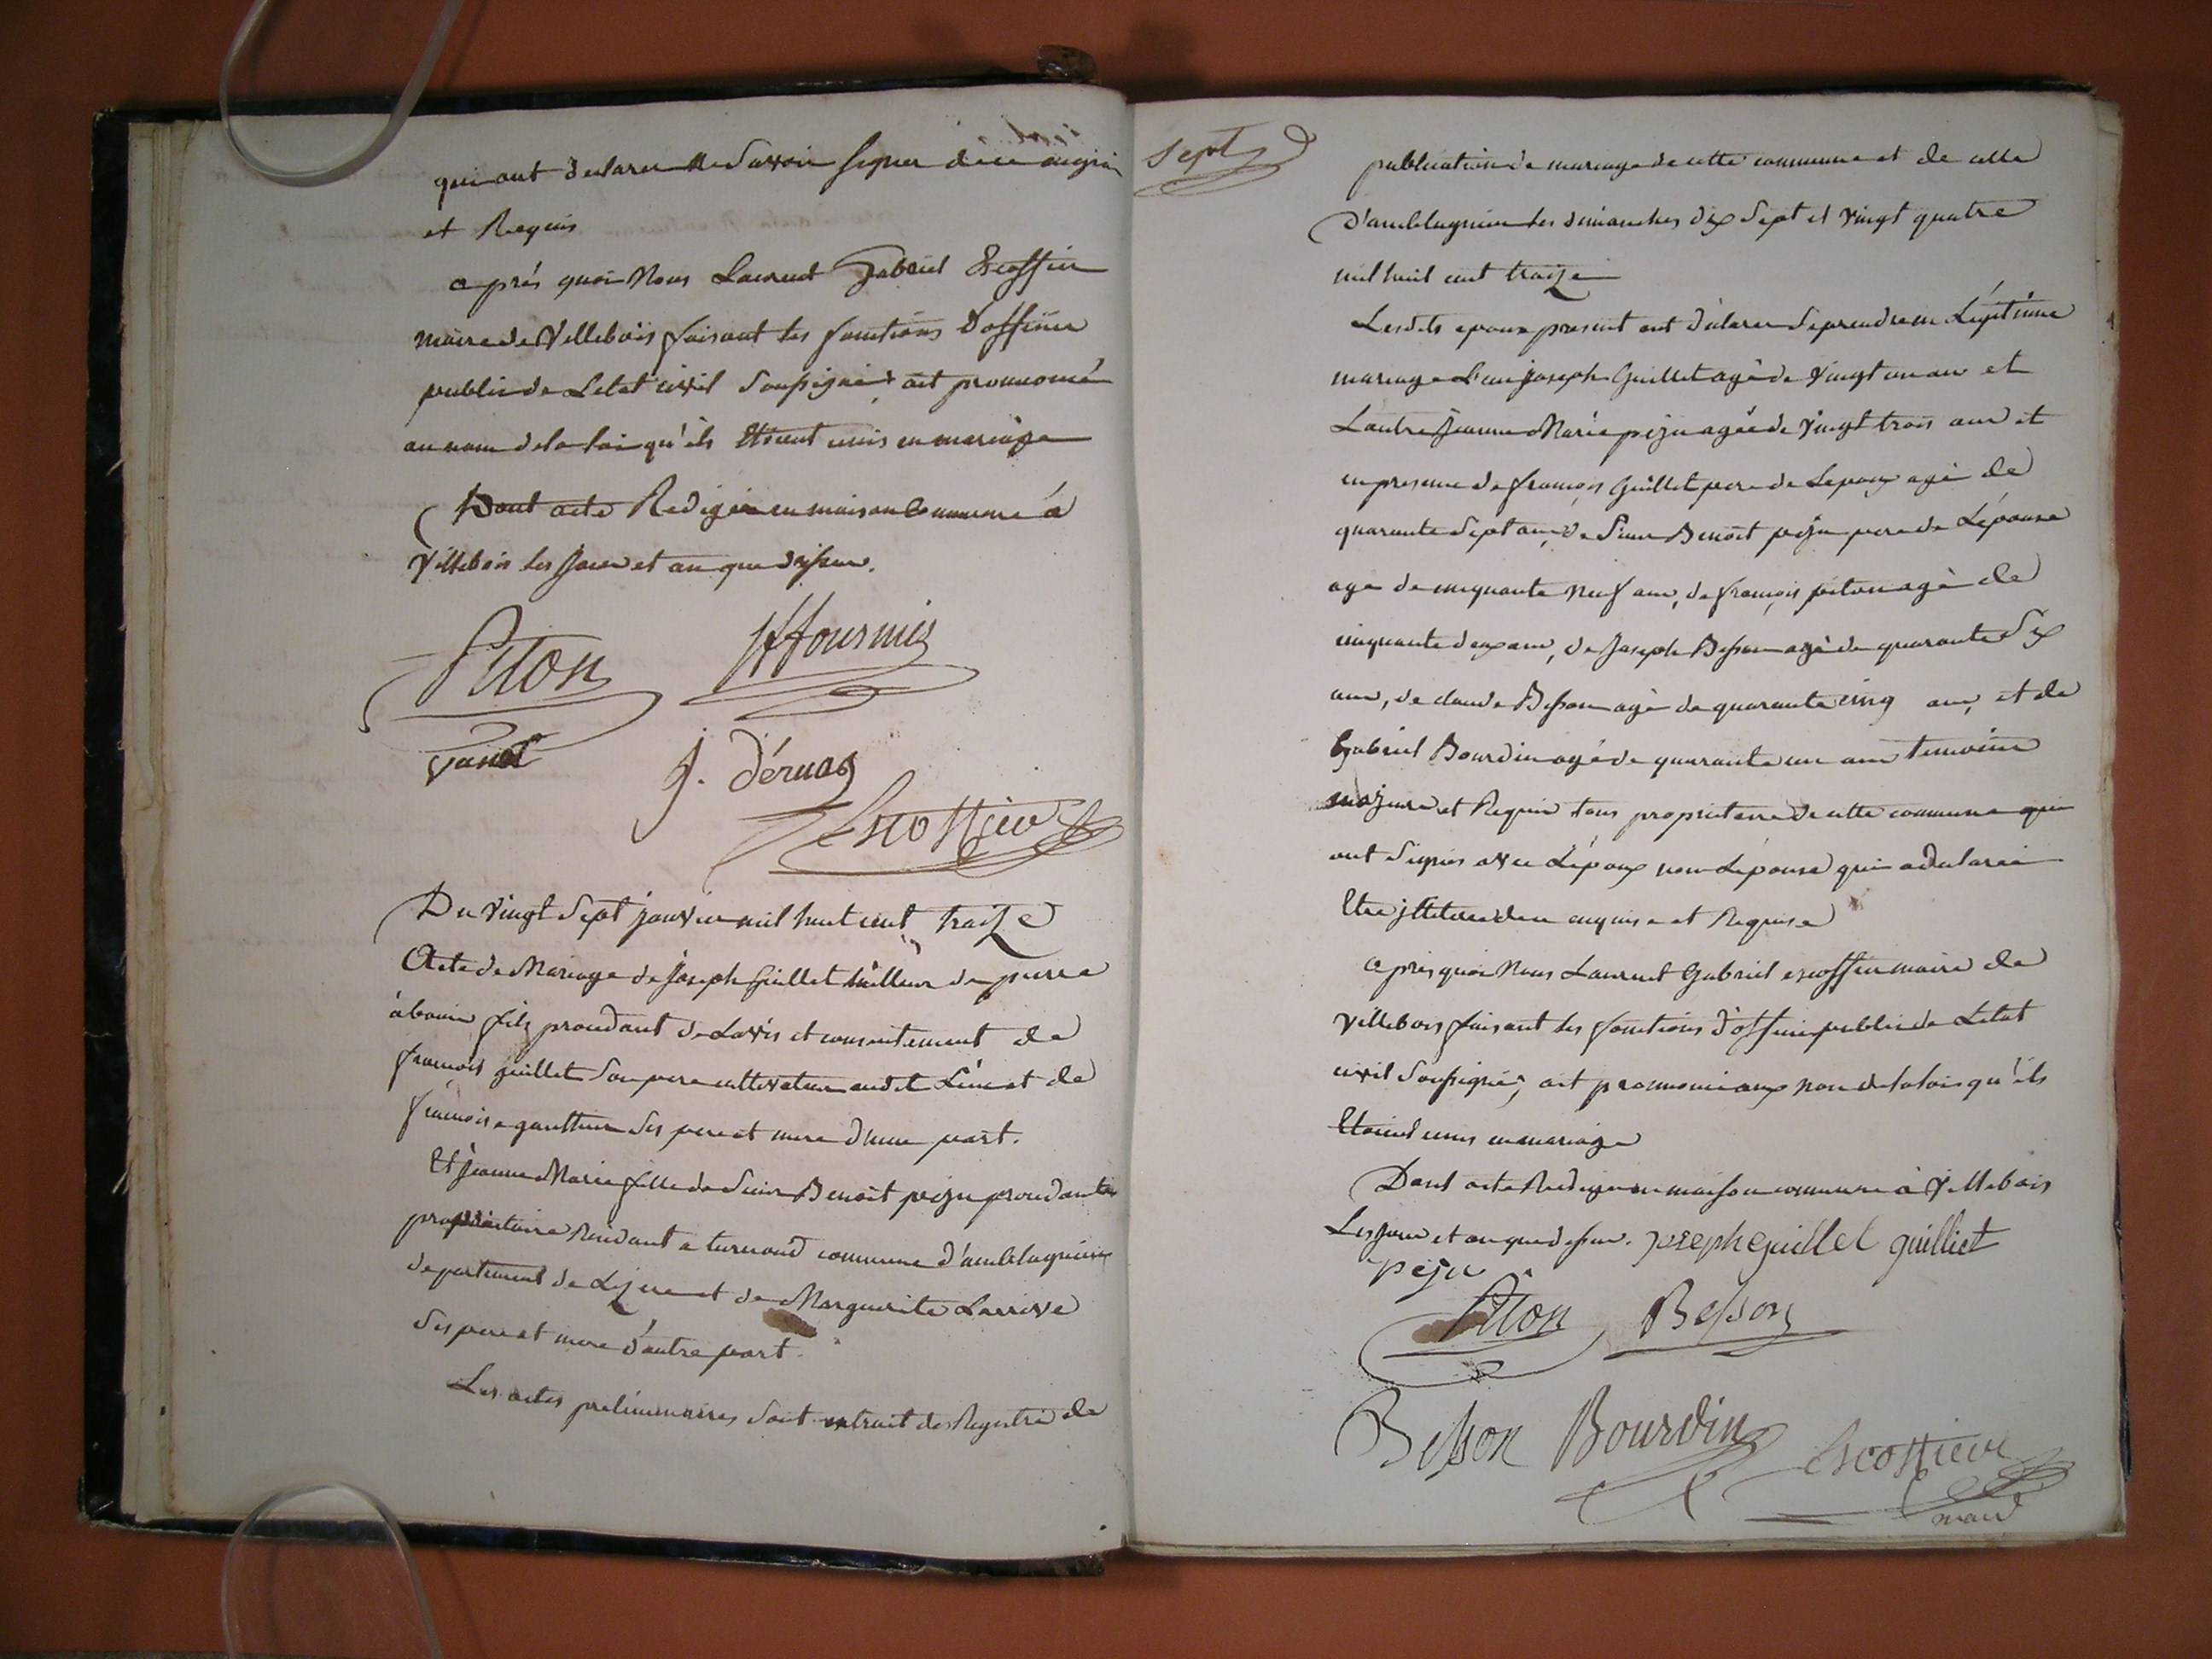 qui ont declarer ne Savoir signer de ce enquis
et Requis
après quoi Nous Laurent Gabriel Escoffier
maire de Villebois faisant les fonctions d'officier
public de Letat civil Soussigné, ait prononcé
au nom de la loi qu'ils Etoient unis en mariage
Dont acte Redigée en maison Commune à
Villebois les jour et an que dessus.
Piton
fournier
vanel
J. Déruaz
Escoffier
Du Vingt Sept janvier mil huit cent traize
Acte de Mariage de Joseph Guillet tailleur de pierre
à bouis fils procédant de Lavis et consentement de
françois guillet Son pere cultivateur audit Lieu et de
françoise gauttier Ses pere et mere d'une part.
Et jeanne Marie fille de Sieur Benoit peju procedante
propriétaire Résidant a turnoud commune d'amblagnieux
departement de Lizere et de Marguerite Larrive
Ses pere et mere d'autre part.
Les actes preliminaires Sont extrait des Registre de
Sept
publication de mariage de cette commune et de celle
D'amblagnieu les dimanches dix Sept et vingt quatre
mil huit cent traize
Lesdits epoux present ont déclarer Se prendre en Légitime
mariage L'un joseph Guillet agé de vingt un an et
Lautre jeanne Marie peju agée de vingt trois ans et
en presence de françois Guillet pere de Lepoux agé de
quarante Sept ans, de Sieur Benoit peju pere de Lépouse
age de cinquante neuf ans, de françois piton agé de
cinquante deux ans, de Joseph Besson agé de quarante Six
ans, de claude Besson agé de quarante cinq ans, et de
Gabriel Bourdin agé de quarante un ans temoins
majeurs et Requis tous proprietaire de cette commune qui
ont Signés avec Lépoux non Lépouse qui a déclarée
Etre jlletteree de ce enquise et Requise
après quoi Nous Laurent Gabriel escoffier maire de
Villebois faisant les fonctions d'officie public de Létat
civil Soussigné, ait prononcé aux nom de la loi qu'ils
Etoient unis en mariage
Dont acte Redigée en maison commune à Villebois
Les jour et an que dessus. joseph guillet guilliet
peju
Piton Besson
Besson Bourdin Escoffier
maire